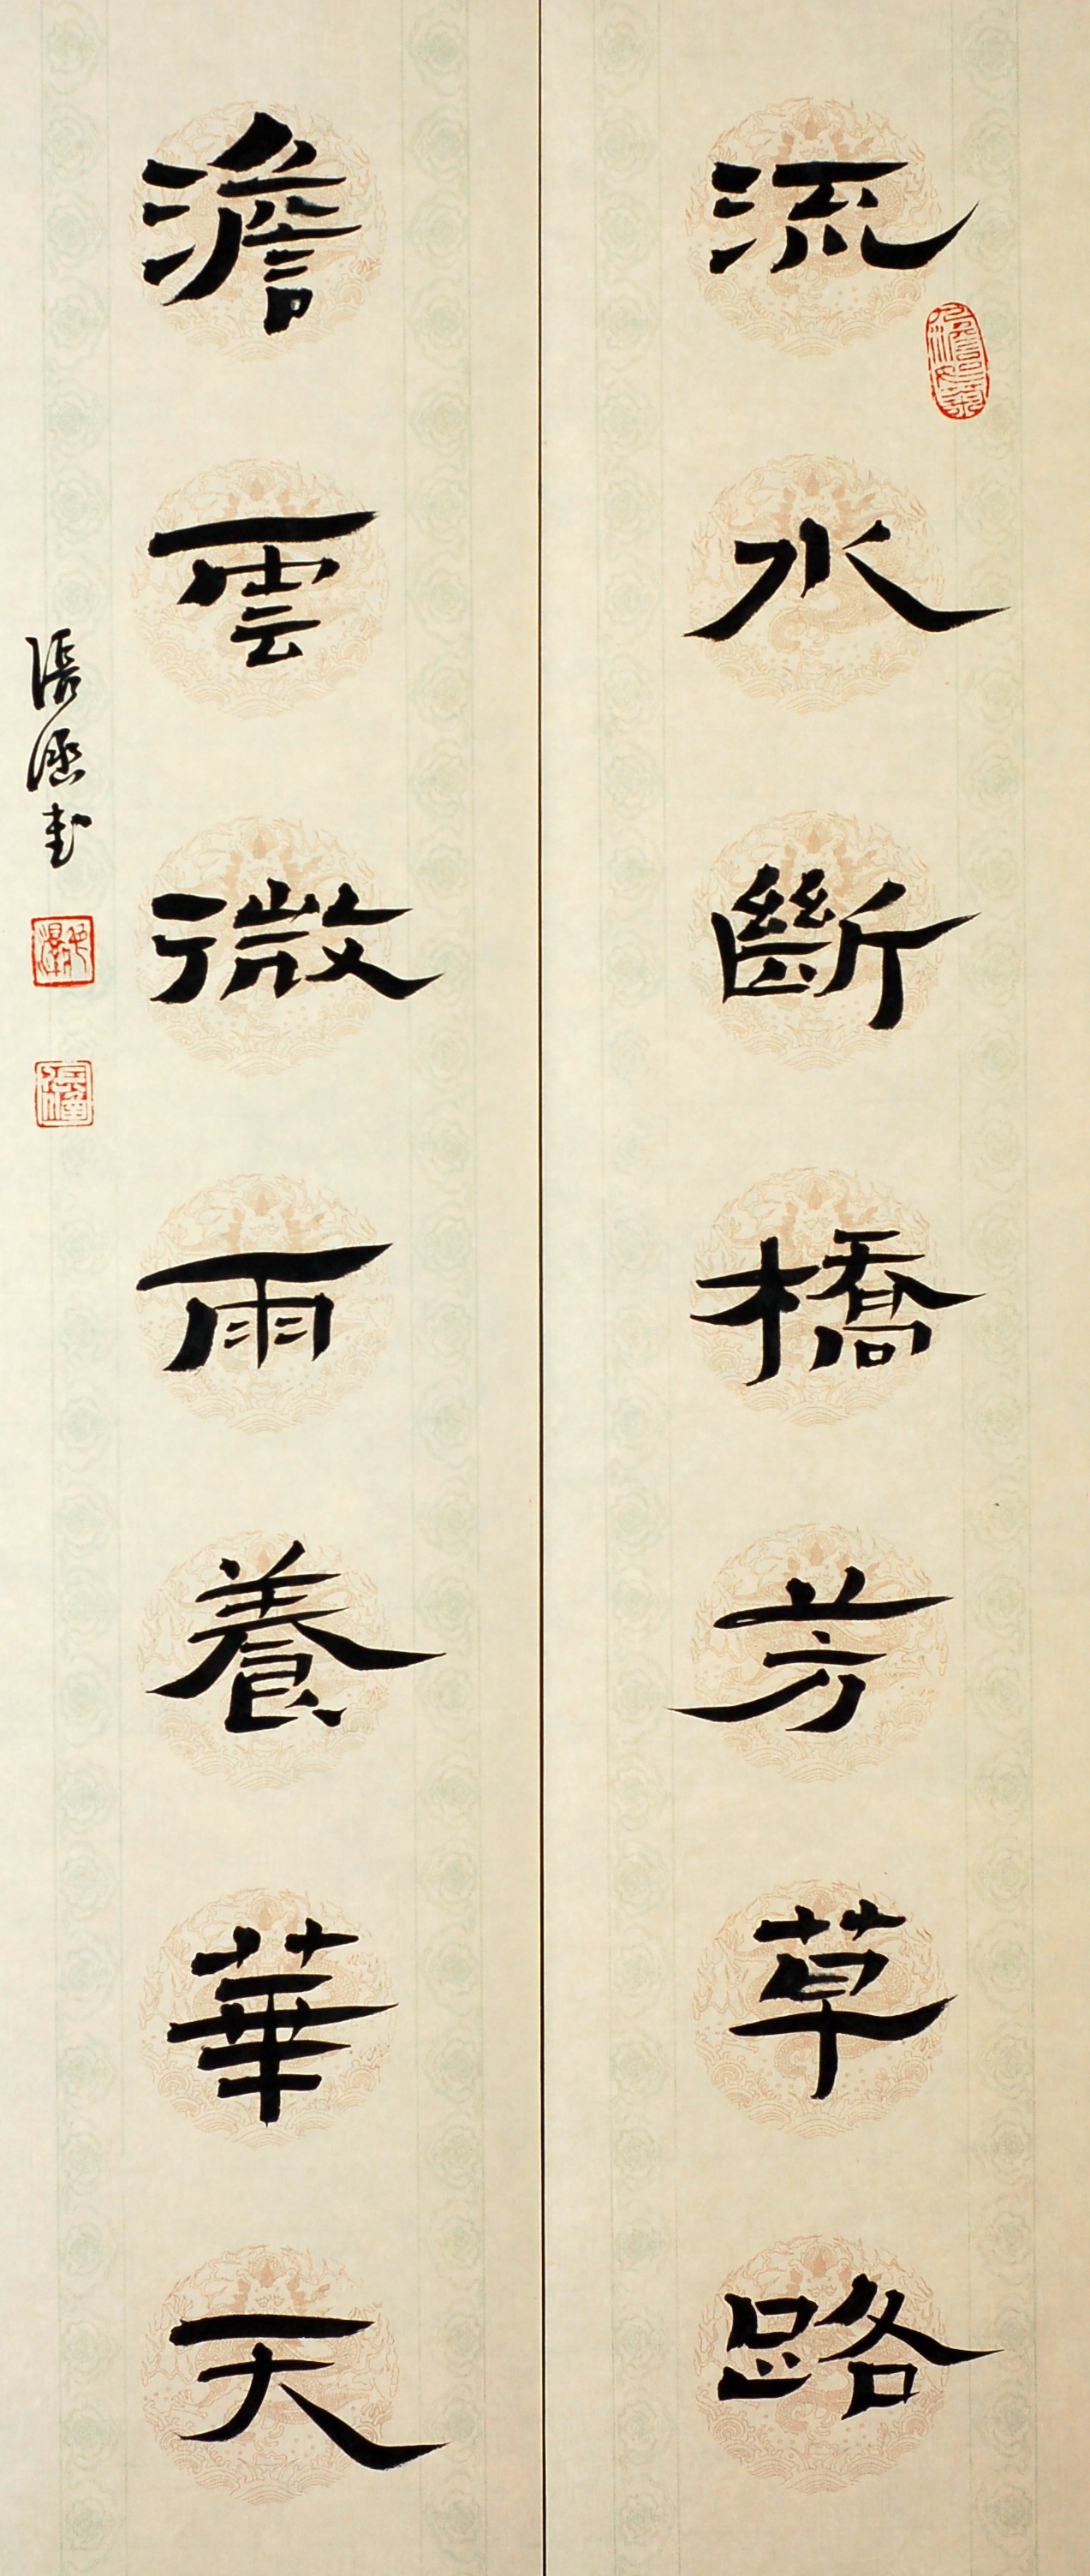 流水斷橋芳草路
澹雲微雨養華天